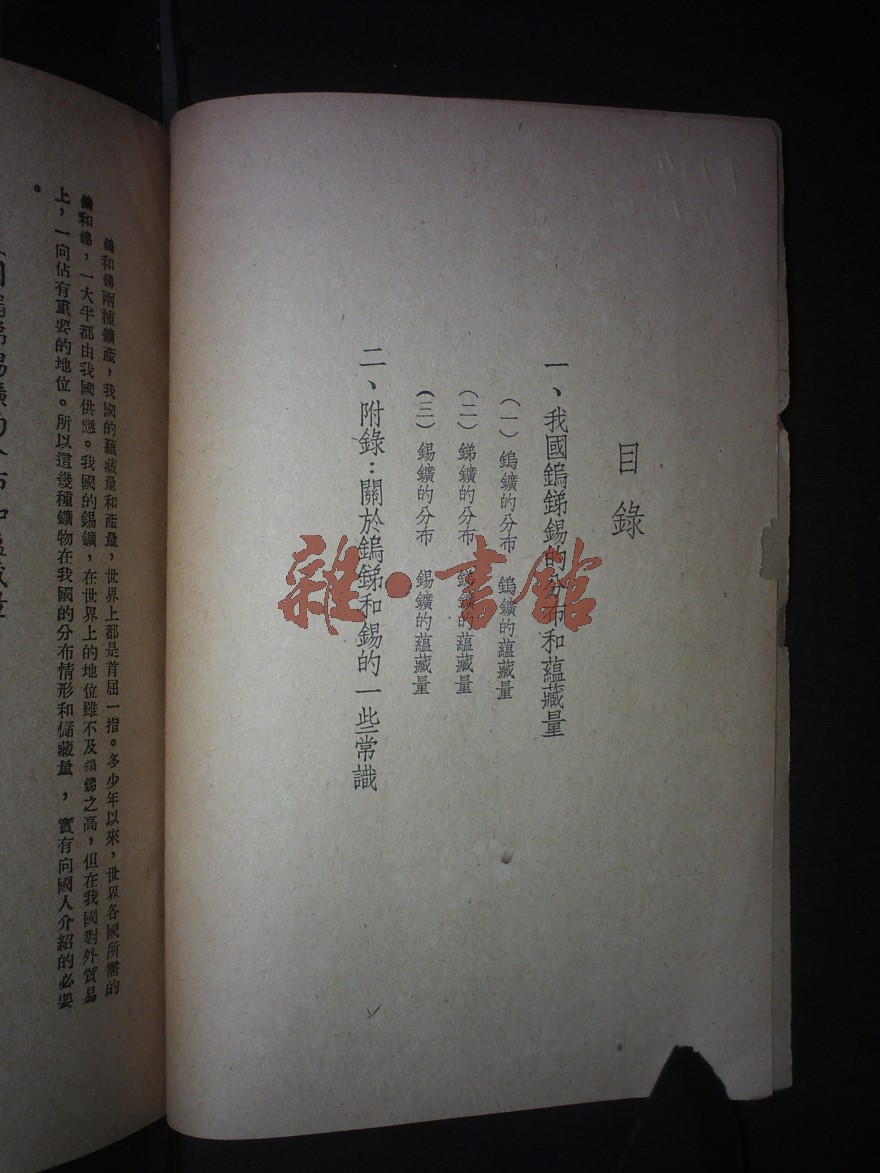 目錄
一、我國鎢銻錫的分布和蘊藏量
(一) 鎢鑛的分布 鎢鑛的蘊藏量
(二) 銻鑛的分布 銻鑛的蘊藏量
(三) 錫鑛的分布 錫鑛的蘊藏量
二、附錄：關於鎢銻和錫的一些常識
雜·書館
我國鎢銻錫鑛的分布和蘊藏量
鎢和銻兩種鑛產，我國的蘊藏量和產量，世界上都是首屈一指。多少年以來，世界各國所需的
鎢和銻，一大半都由我國供應。我國的錫鑛，在世界上的地位雖不及鎢銻之高，但在我國對外貿易
上，一向佔有重要的地位。所以這幾種鑛物在我國的分布情形和儲藏量，實有向國人介紹的必要
。